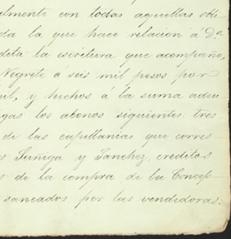 almente con todas aquellas obli
da la que hace relacion á Da
dita la escritura que acompaño,
Negrete a seis mil pesos por
ul, y hechos á la suma adeu
gas los abonos siguientes, tres
de las capellanias que corres
s Zuñiga y Sanchez, creditos
s de la compra de la Concep
saneados por las vendedoras.